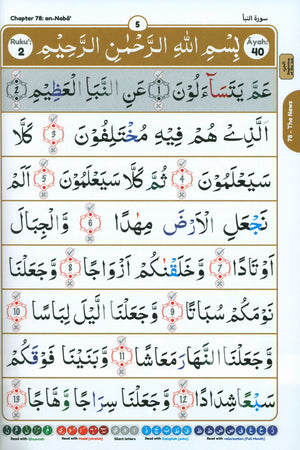 Chapter 78: an-Nabã'
5
سورة النبأ
Ruku': 2
بِسْمِ اللهِ الرَّحْمٰنِ الرَّحِيْمِ
Ayah: 40
عَمَّ يَتَسَآءَلُوْنَ 1 عَنِ النَّبَاِ الْعَظِيْمِ 2
الَّذِيْ هُمْ فِيْهِ مُخْتَلِفُوْنَ 3 كَلَّا
سَيَعْلَمُوْنَ 4 ثُمَّ كَلَّا سَيَعْلَمُوْنَ 5 اَلَمْ
نَجْعَلِ الْاَرْضَ مِهٰدًا 6 وَّالْجِبَالَ
اَوْتَادًا 7 وَّخَلَقْنٰكُمْ اَزْوَاجًا 8 وَّجَعَلْنَا
نَوْمَكُمْ سُبَاتًا 9 وَّجَعَلْنَا الَّيْلَ لِبَاسًا 10
وَّجَعَلْنَا النَّهَارَ مَعَاشًا 11 وَّبَنَيْنَا فَوْقَكُمْ
سَبْعًا شِدَادًا 12 وَّجَعَلْنَا سِرَاجًا وَّهَّاجًا 13
78 - The News
Read with Ghunnah
Read with Madd (stretch)
Silent letters
Read with Qalqalah (echo)
Read with velarisation (Full Mouth)